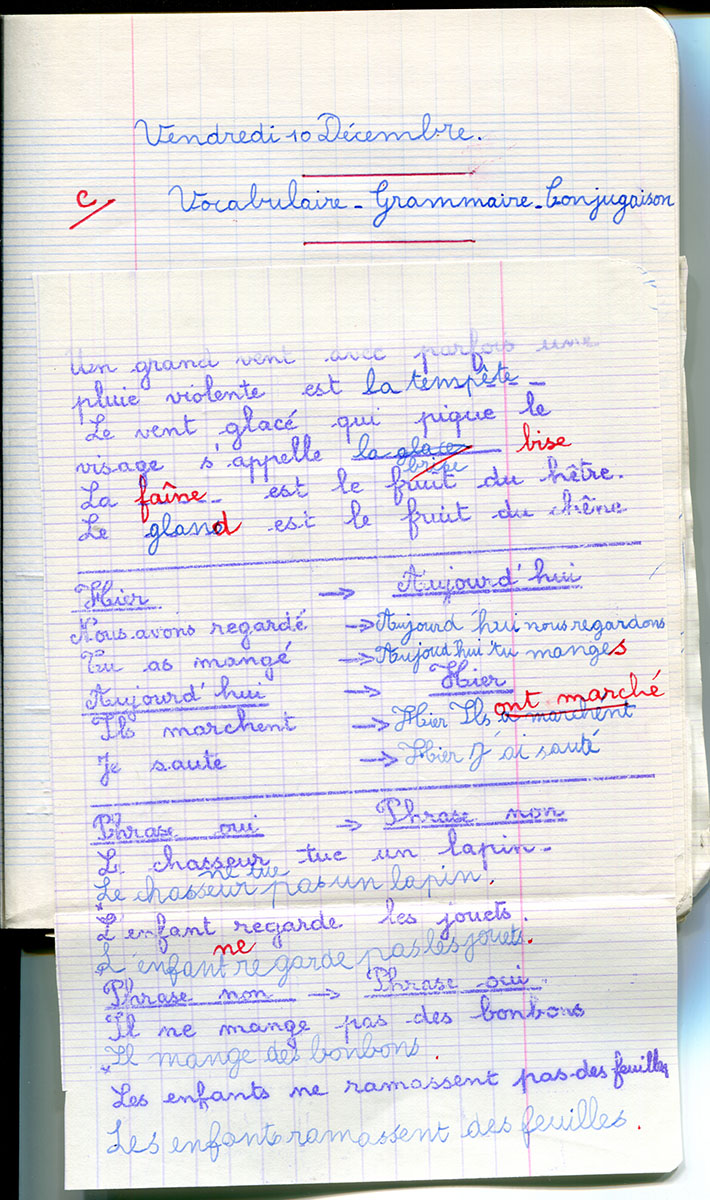 Vendredi 10 Décembre.
C Vocabulaire - Grammaire - Conjugaison
Un grand vent avec parfois une
pluie violente est la tempête
Le vent glacé qui pique le
visage s'appelle la glace brise bise
La faîne est le fruit du hêtre.
Le gland est le fruit du chêne
Hier → Aujourd'hui
Nous avons regardé → Aujourd'hui nous regardons
Tu as mangé → Aujoud'hui tu manges
Aujourd'hui → Hier
ont marché
Ils marchent → Hier Ils marchent
Je saute → Hier J'ai sauté
Phrase oui → Phrase non
Le chasseur tue un lapin.
ne tue
Le chasseur pas un lapin.
L'enfant regarde les jouets.
ne
L'enfant regarde pas les jouets.
Phrase non → Phrase oui
Il ne mange pas des bonbons
Il mange des bonbons.
Les enfants ne ramassent pas des feuilles
Les enfants ramassent des feuilles.